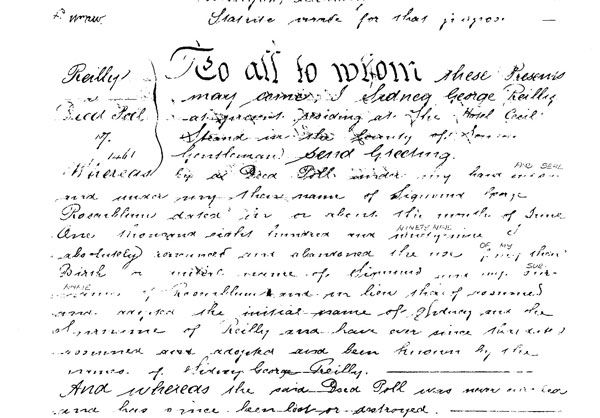 Statute made for that purpose —
Reilly
Deed Poll
To all to whom these Presents
may come, I Sidney George Reilly
at present residing at the Hotel Cecil
Strand in the County of
Gentleman Send Greeting.
Whereas by a Deed Poll under my hand AND SEAL
and under my then name of Sigmund George
Rosenblum dated in or about the month of June
One thousand eight hundred and ninety-nine NINETY NINE I
absolutely renounced and abandoned the use OF MY my then
Birth or initial name of Sigmund and my SUR-
NAME of Rosenblum and in lieu thereof assumed
and adopted the initial name of Sidney and the
surname of Reilly and have ever since
assumed and adopted and been known by the
names of Sidney George Reilly.
And whereas the said Deed Poll was never
and has since been lost or destroyed.